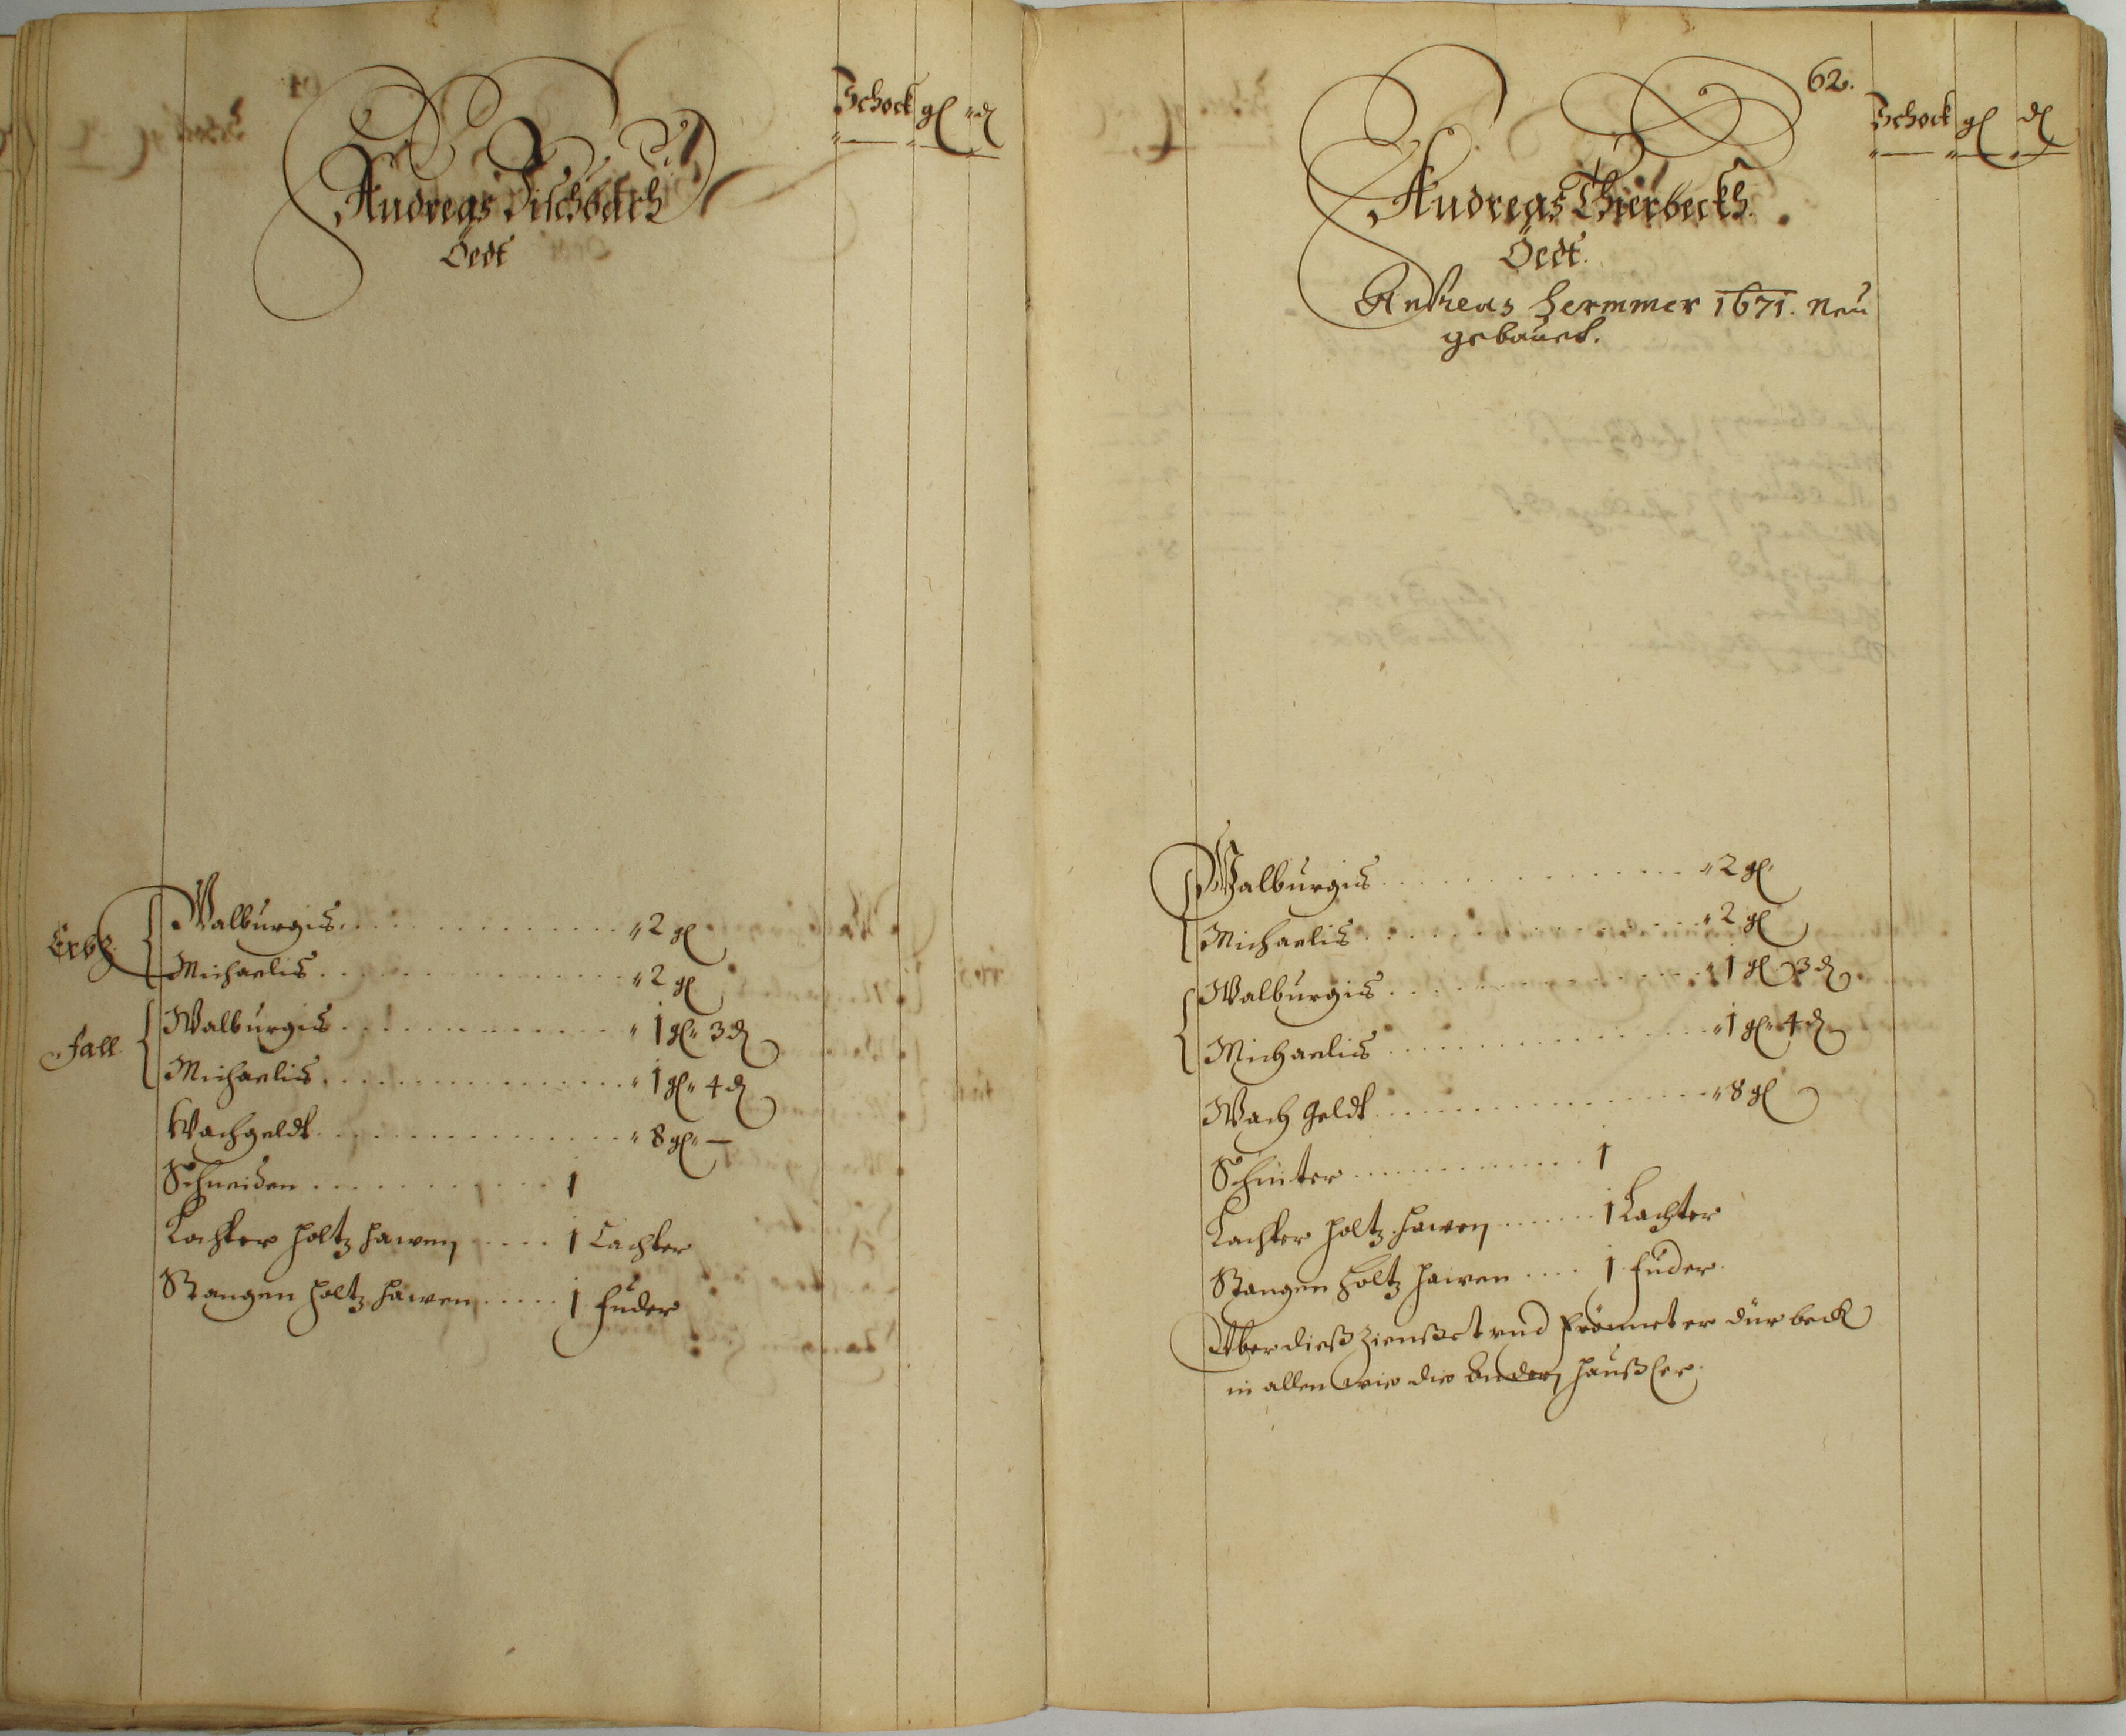 Schock gl. d.
Andreas Fischbach
Öedt
Erbz.
Walburgis . . . . . . . . . . . . . . „ 2 gl
Michaelis . . . . . . . . . . . . . . „ 2 gl
Fall.
Walburgis . . . . . . . . . . . . „ 1 gl. 3 d
Michaelis . . . . . . . . . . . . . . „ 1 gl. 4 d
Wachgeldt . . . . . . . . . . . . . . „ 8 gl. —
Schneiden . . . . . . . . . . . 1
Lachter holtz hawen . . . . 1 Lachter
Stangen holtz hawen . . . . . 1 fuder
62.
Schock gl d
Andreas Thierbeckh.
Öedt.
Andreas Hermmer 1671. Neu
gebauet.
Walburgis . . . . . . . . . . . . . . „ 2 gl.
Michaelis . . . . . . . . . . . . . . „ 2 gl
Walburgis . . . . . . . . . . . . . . „ 1 gl. 3 d
Michaelis . . . . . . . . . . . . . . „ 1 gl. 4 d
Wach geldt . . . . . . . . . . . . . . „ 8 gl
Schniter . . . . . . . . . . . . 1
Lachter holtz hawen . . . . . . . 1 Lachter
Stangen holtz hawen . . . . 1 fuder.
Uber dieß Zienßet vnd frönnet er dürbeck
in allen wie die andern häußler.